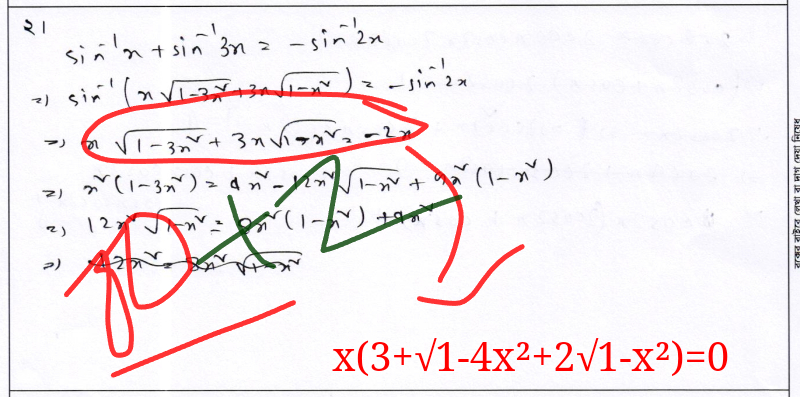 ২।
sin⁻¹x + sin⁻¹3x = -sin⁻¹2x
=> sin⁻¹(x√1-3x² + 3x√1-x²) = -sin⁻¹2x
=> x√1-3x² + 3x√1-x² = -2x
=> x²(1-3x²) = 4x² - 12x²√1-x² + 9x²(1-x²)
=> 12x²√1-x² = 9x²(1-x²) + 4x²
x(3+√1-4x²+2√1-x²)=0